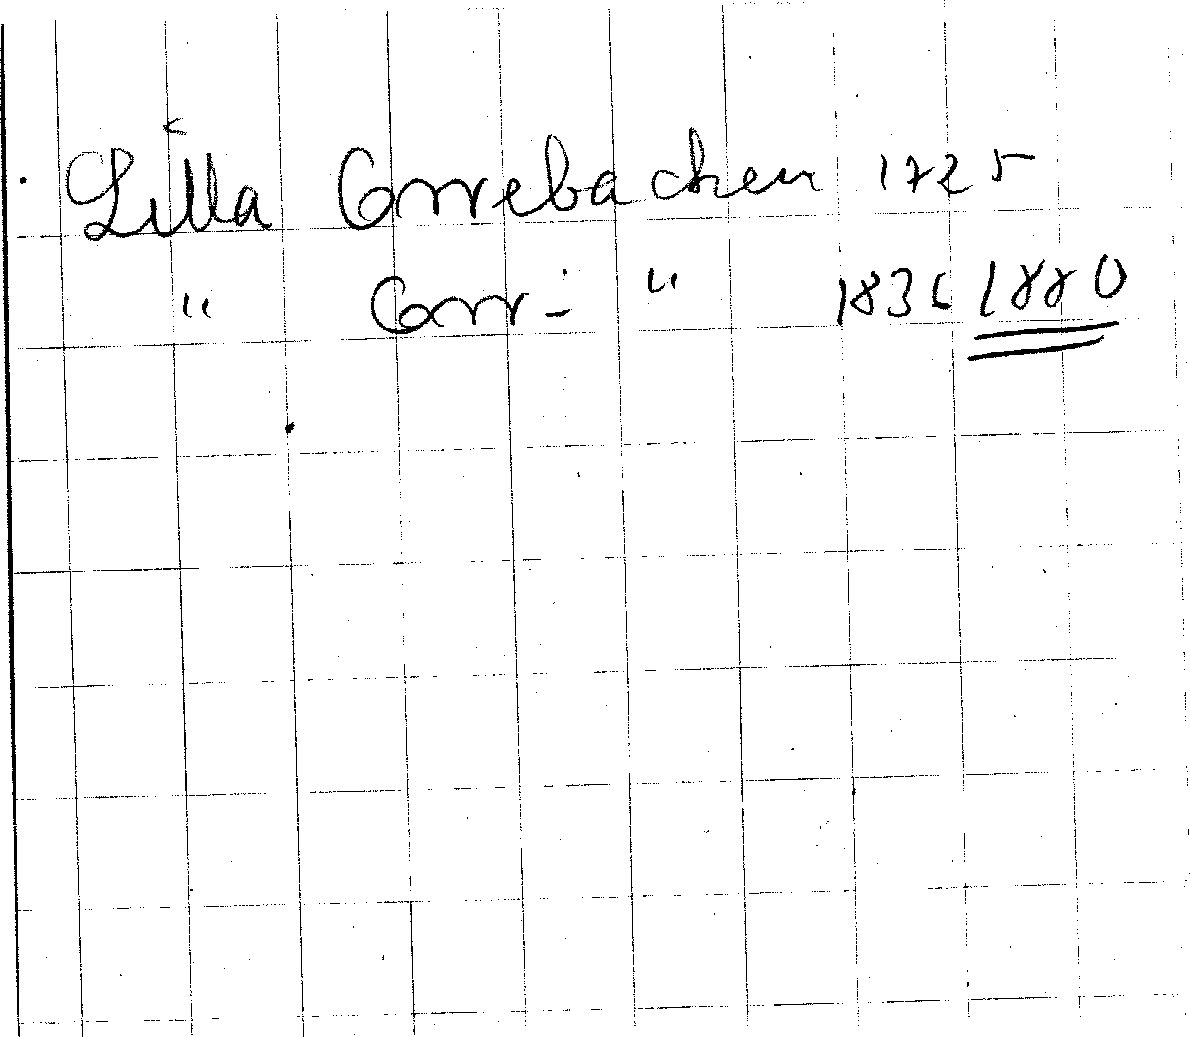 Lilla Orrebacken 1725
" Orr- " 1836 1880